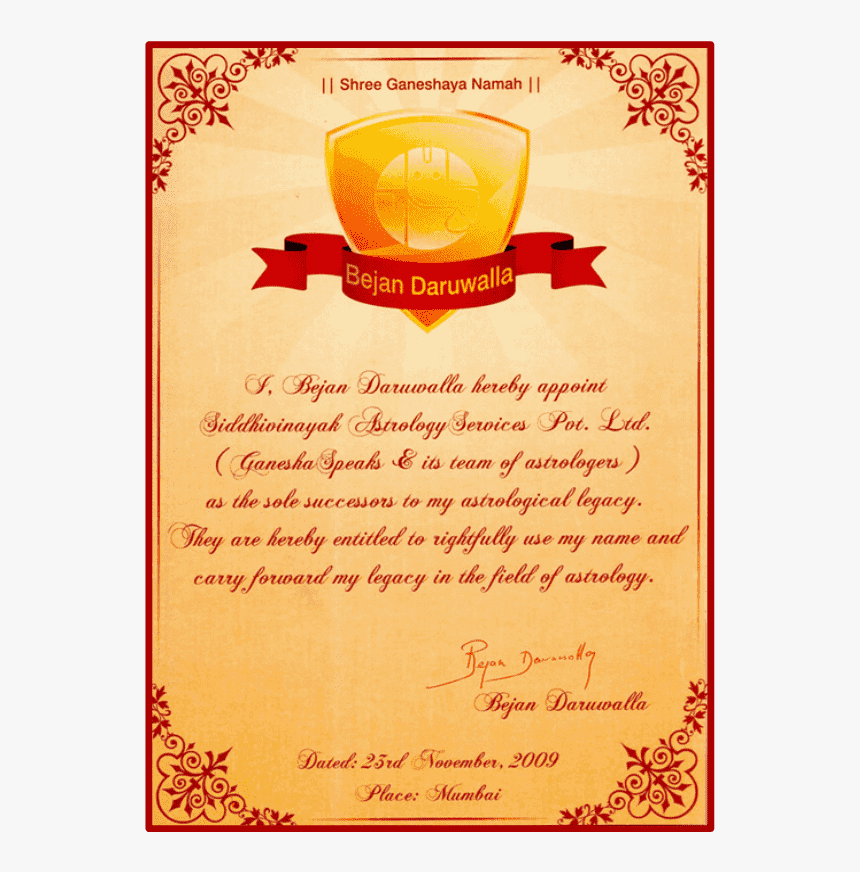 || Shree Ganeshaya Namah ||
Bejan Daruwalla
I, Bejan Daruwalla hereby appoint
Siddhivinayak Astrology Services Pvt. Ltd.
( GaneshaSpeaks & its team of astrologers )
as the sole successors to my astrological legacy.
They are hereby entitled to rightfully use my name and
carry forward my legacy in the field of astrology.
Bejan Daruwalla
Bejan Daruwalla
Dated: 23rd November, 2009
Place: Mumbai